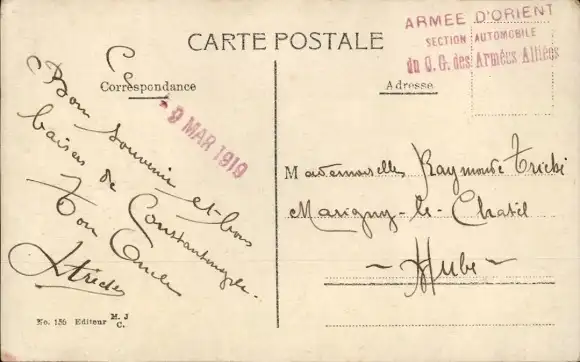 CARTE POSTALE
ARMEE D'ORIENT
SECTION AUTOMOBILE
du Q. G. des Armées Alliées
Correspondance
Adresse
9 MAR 1919
Bon souvenir et bons
baisers de Constantinople.
Ton Oncle
Mademoiselle Raymonde
Marigny-le-Chatel
- Aube -
No. 156 Editeur M. J
C.